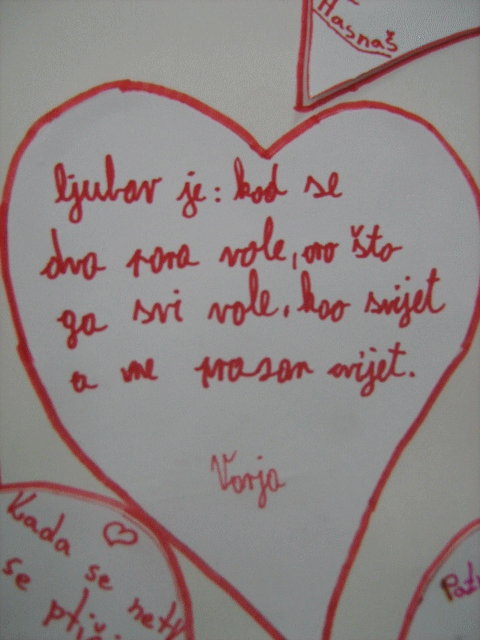 Hasnaš
ljubav je: kod se
dva rora vole, oro što
ga svi vole. kao svijet
a ne prasan svijet.
Varja
Kada
se net
se ptič
Paž